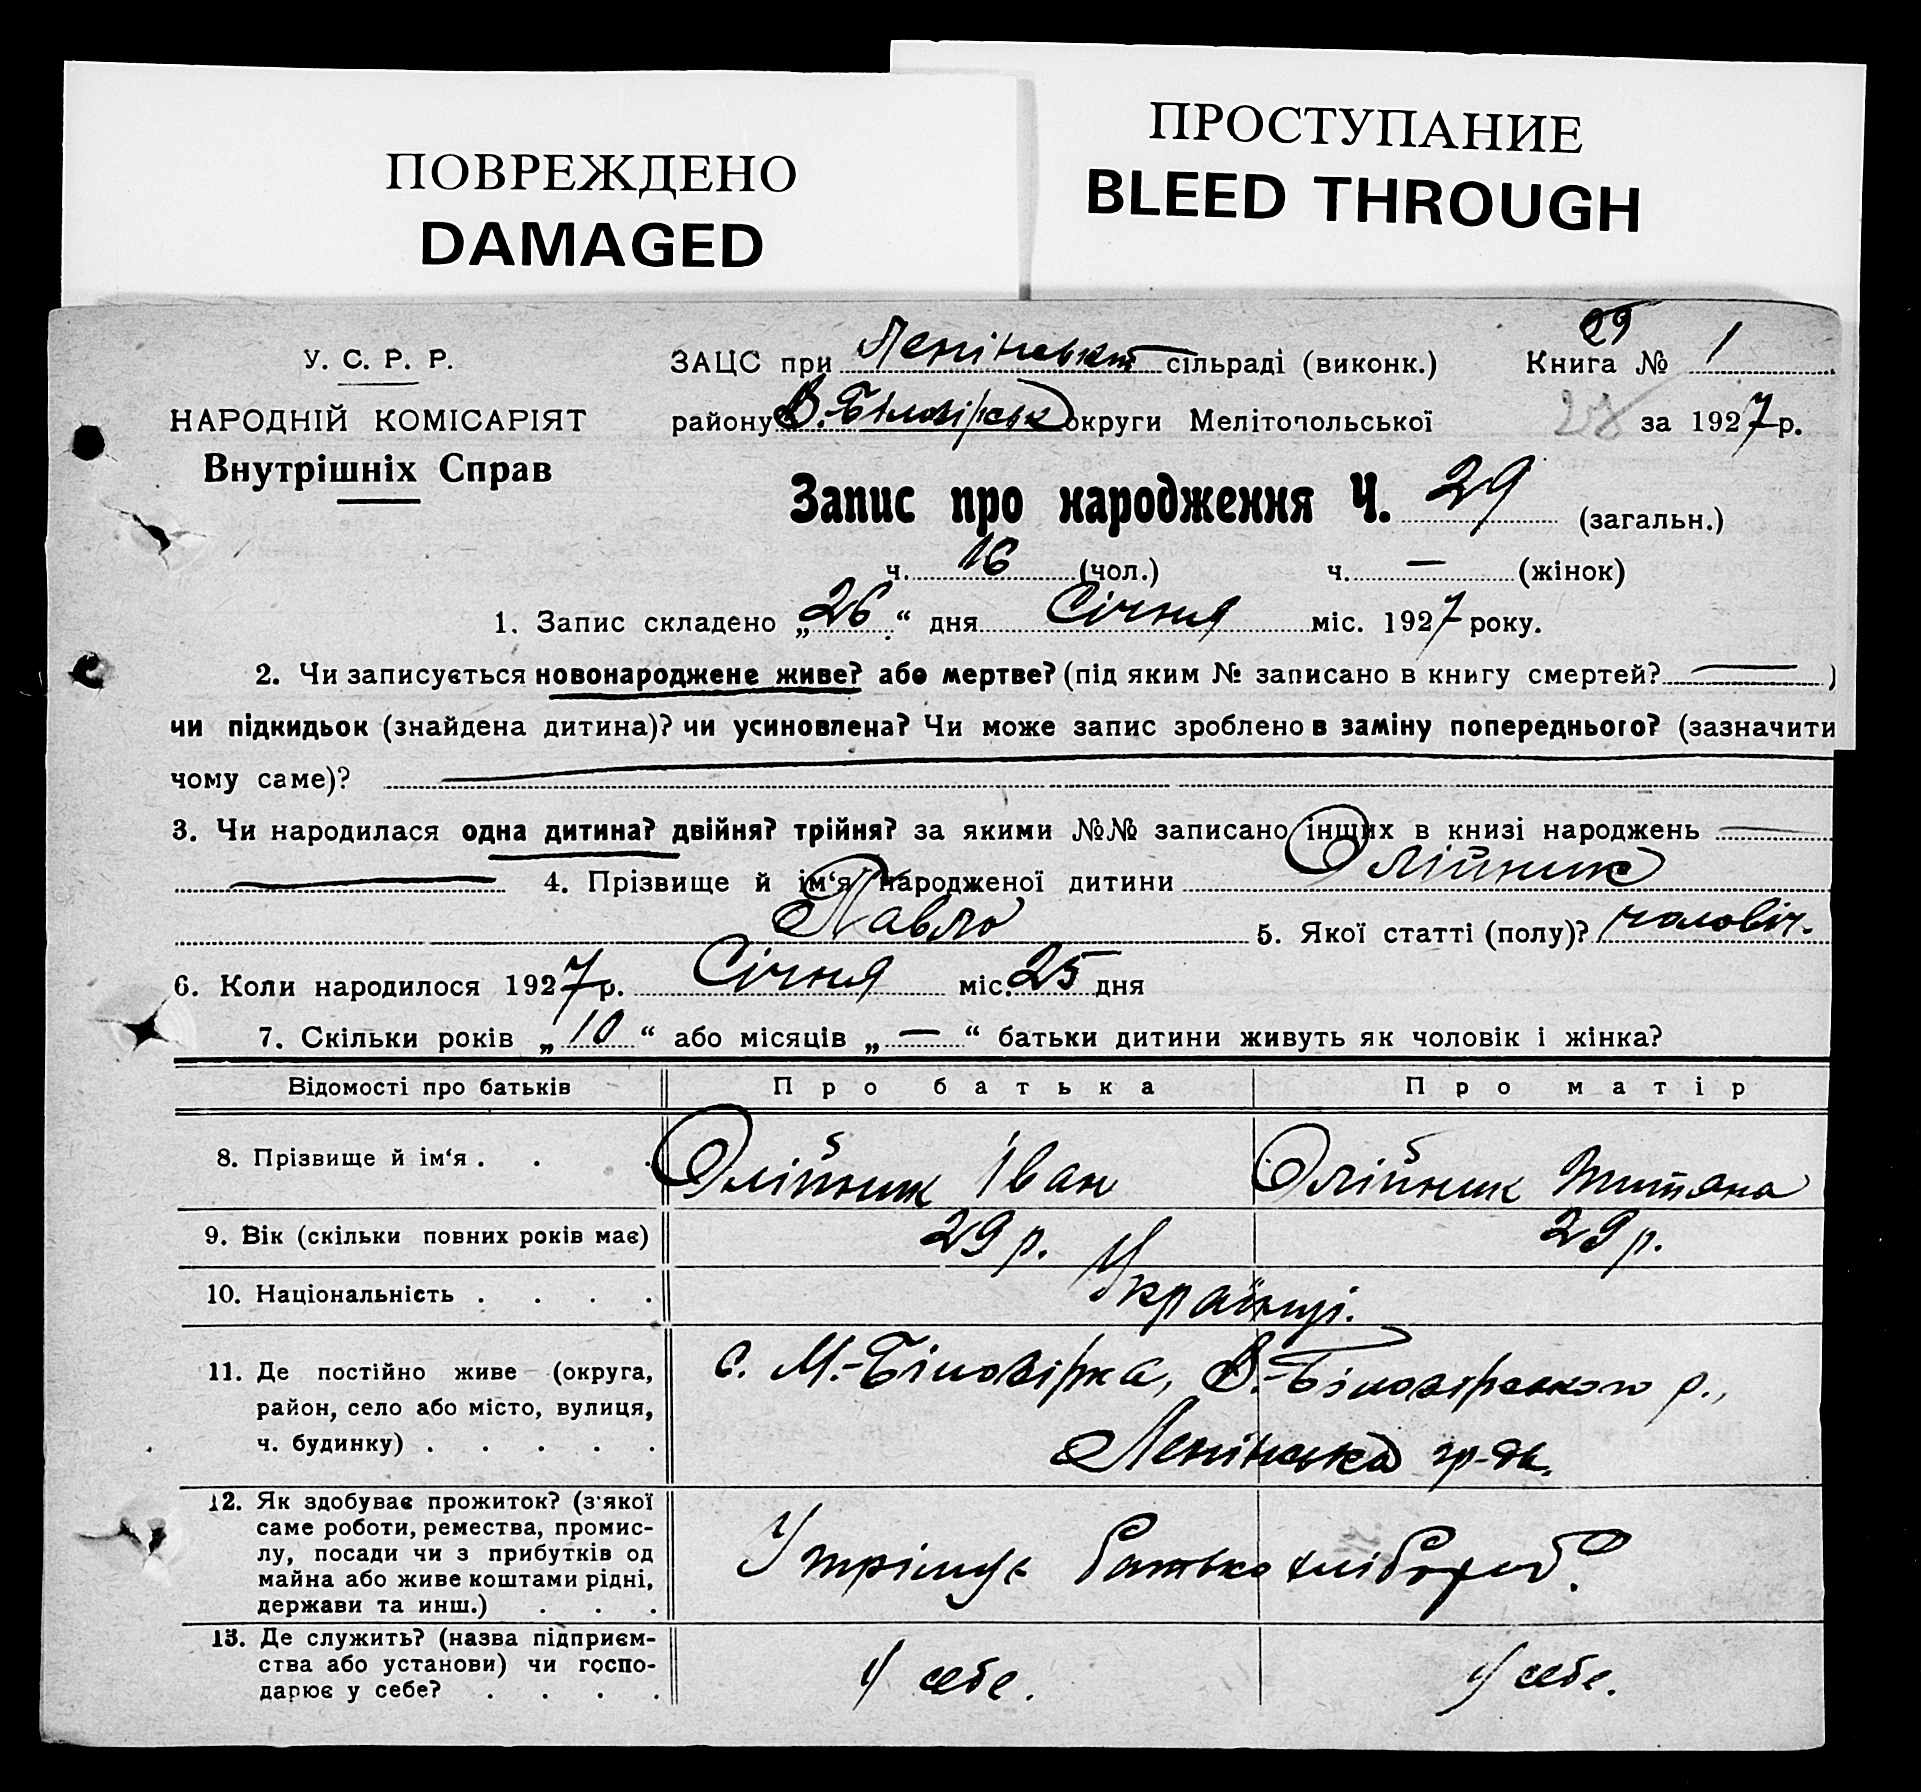 ПОВРЕЖДЕНО
DAMAGED
ПРОСТУПАНИЕ
BLEED THROUGH
У. С. Р. Р.
НАРОДНІЙ КОМІСАРІЯТ
Внутрішніх Справ
29
ЗАЦС при Ленінськ. сільраді (виконк.) Книга № 1
району В.-Білозірськ округи Мелітопольської 28 за 1927 р.
Запис про народження Ч. 29 (загальн.)
ч. 16 (чол.) ч. — (жінок)
1. Запис складено „26“ дня Січня міс. 1927 року.
2. Чи записується новонароджене живе? або мертве? (під яким № записано в книгу смертей? — )
чи підкидьок (знайдена дитина)? чи усиновлена? Чи може запис зроблено в заміну попереднього? (зазначити
чому саме)?
3. Чи народилася одна дитина? двійня? трійня? за якими №№ записано інших в книзі народжень —
— 4. Прізвище й ім‘я народженої дитини Олійник
Павло 5. Якої статті (полу)? чоловіч.
6. Коли народилося 1927 р. Січня міс. 25 дня
7. Скільки років „10“ або місяців „—“ батьки дитини живуть як чоловік і жінка?
Відомості про батьків Про батька Про матір
8. Прізвище й ім‘я . . . Олійник Іван Олійник Титяна
9. Вік (скільки повних років має) 29 р. 29 р.
10. Національність . . . . Українці.
11. Де постійно живе (округа, с. М.-Білозірка, В.-Білозірського р.,
район, село або місто, вулиця,
ч. будинку) . . . . . Ленінська гр-да.
12. Як здобуває прожиток? (з'якої
саме роботи, ремества, промис-
лу, посади чи з прибутків од Утрімує батько хлібороб.
майна або живе коштами рідні,
держави та инш.) . . .
13. Де служить? (назва підприєм-
ства або установи) чи госпо- У себе. У себе.
дарює у себе? . . . .